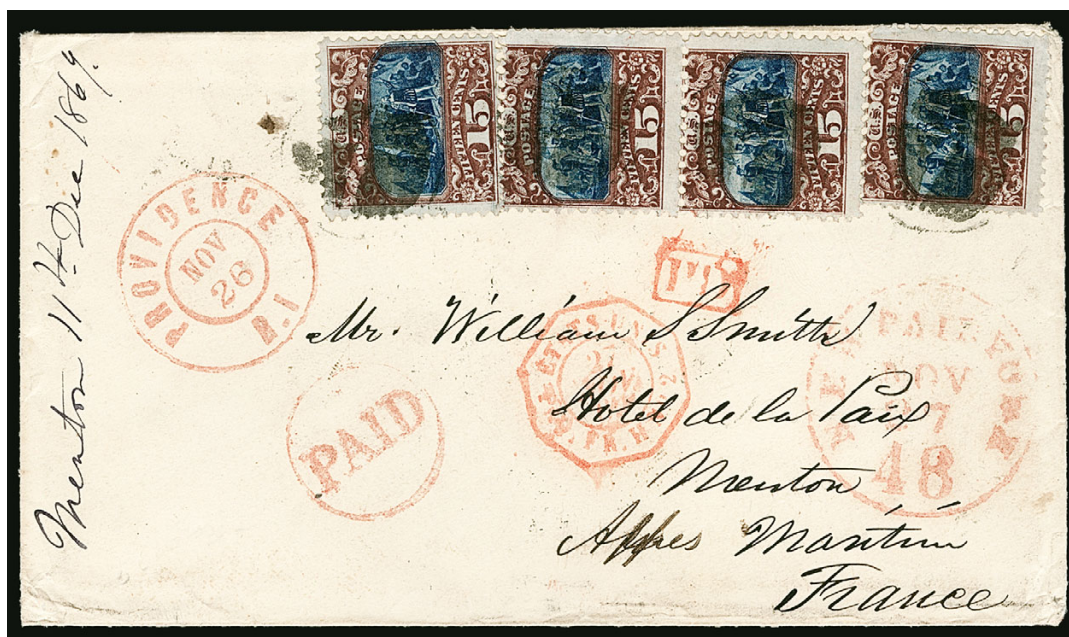 Menton 11th Dec 1869.
U.S. POSTAGE FIFTEEN CENTS 15
U.S. POSTAGE FIFTEEN CENTS 15
U.S. POSTAGE FIFTEEN CENTS 15
U.S. POSTAGE FIFTEEN CENTS 15
PROVIDENCE
NOV
26
R.I
PAID
NOV
27
48
PAID
Mr. William S Smith
Hotel de la Paix
Menton
Alpes Maritim
France